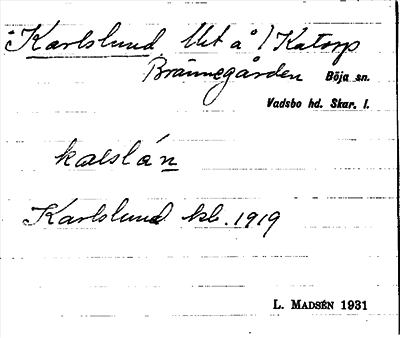 Karlslund Ut å / Katorp
Brännegården Böja sn.
Vadsbo hd. Skar. l.
kaslán
Karlslund kb. 1919
L. MADSÉN 1931